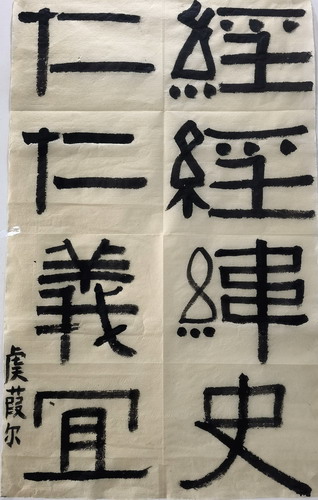 經經緯史
仁仁義宜
虞葭尔